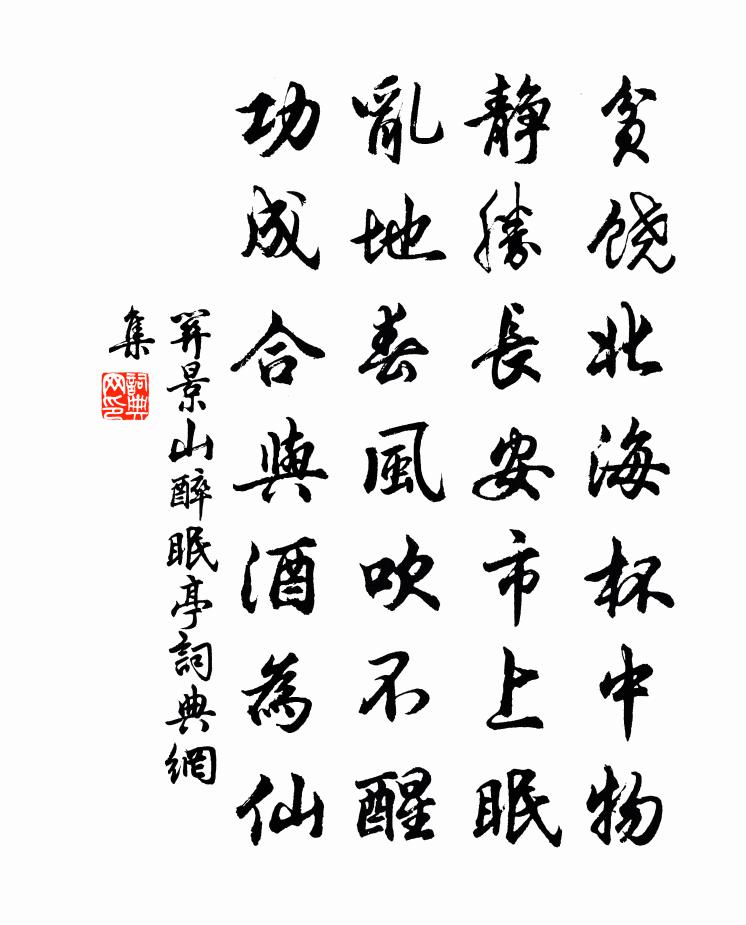 貧饒北海杯中物
靜勝長安市上眠
亂地春風吹不醒
功成合與酒為仙
關景山醉眠亭詞典網
集
詞典網印